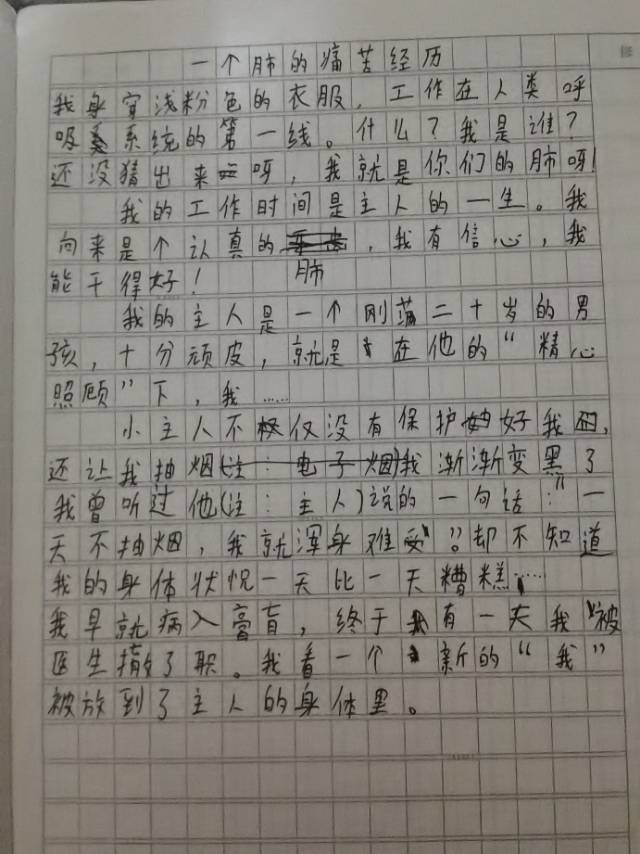 一个肺的痛苦经历
我身穿浅粉色的衣服，工作在人类呼
吸系统的第一线。什么？我是谁？
还没猜出来呀，我就是你们的肺呀！
我的工作时间是主人的一生。我
向来是个认真的肺，我有信心，我
能干得好！
我的主人是一个刚满二十岁的男
孩，十分顽皮，就是在他的“精心
照顾”下，我……
小主人不仅没有保护好我，
还让我抽烟(注：电子烟)我渐渐变黑了
我曾听过他(注：主人)说的一句话：“一
天不抽烟，我就浑身难受”。却不知道
我的身体状况一天比一天糟糕……
我早就病入膏肓，终于有一天我被
医生撤了职。我看一个新的“我”
被放到了主人的身体里。